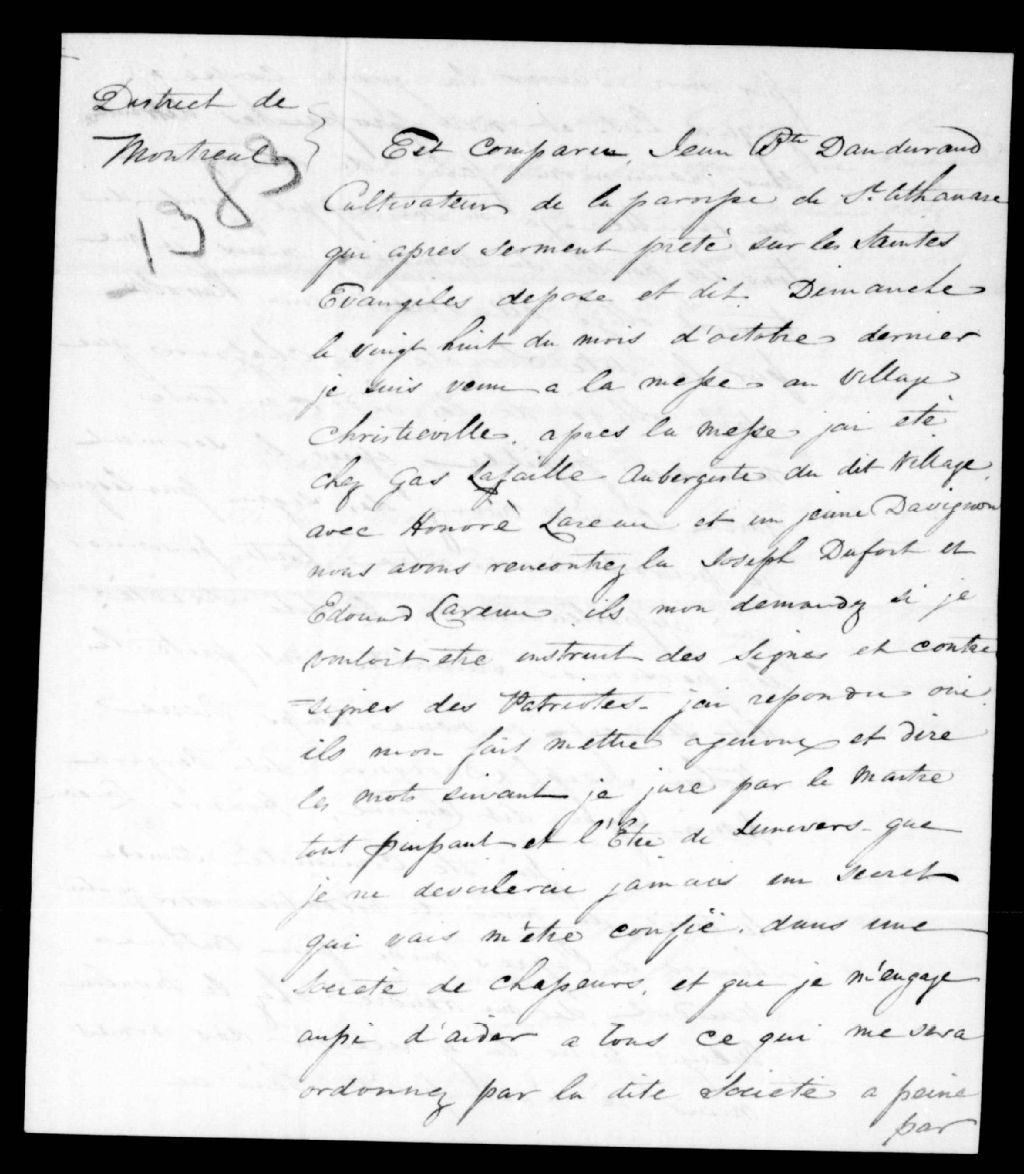 District de
Montreal
1383
Est comparu, Jean Bte Dandurand
Cultivateur de la paroisse de St. Athanase
qui apres serment preté sur les Saintes
Evangiles depose et dit. Dimanche
le vingt huit du mois d'octobre dernier
je suis venu a la messe au Village
Christieville. apres la messe jai été
chez Gas Lafaille Aubergiste du dit Village
avec Honoré Lareau et un jeune Davignon
nous avons rencontrez la Joseph Dufort et
Edouard Lareau ils mon demandez si je
vouloit etre instruit des signes et contre
-signes des Patriotes - jai repondu oui
ils mon fait mettre agenoux et dire
les mots suivant je jure par le Maitre
tout puissant et l'Etre de Lunivers - que
je ne devoilerai jamais un secret
qui vais m'etre confié. dans une
Societe de chasseurs. et que je m'engage
aussi d'aider a tous ce qui me sera
ordonnez par la dite Societé a peine
par